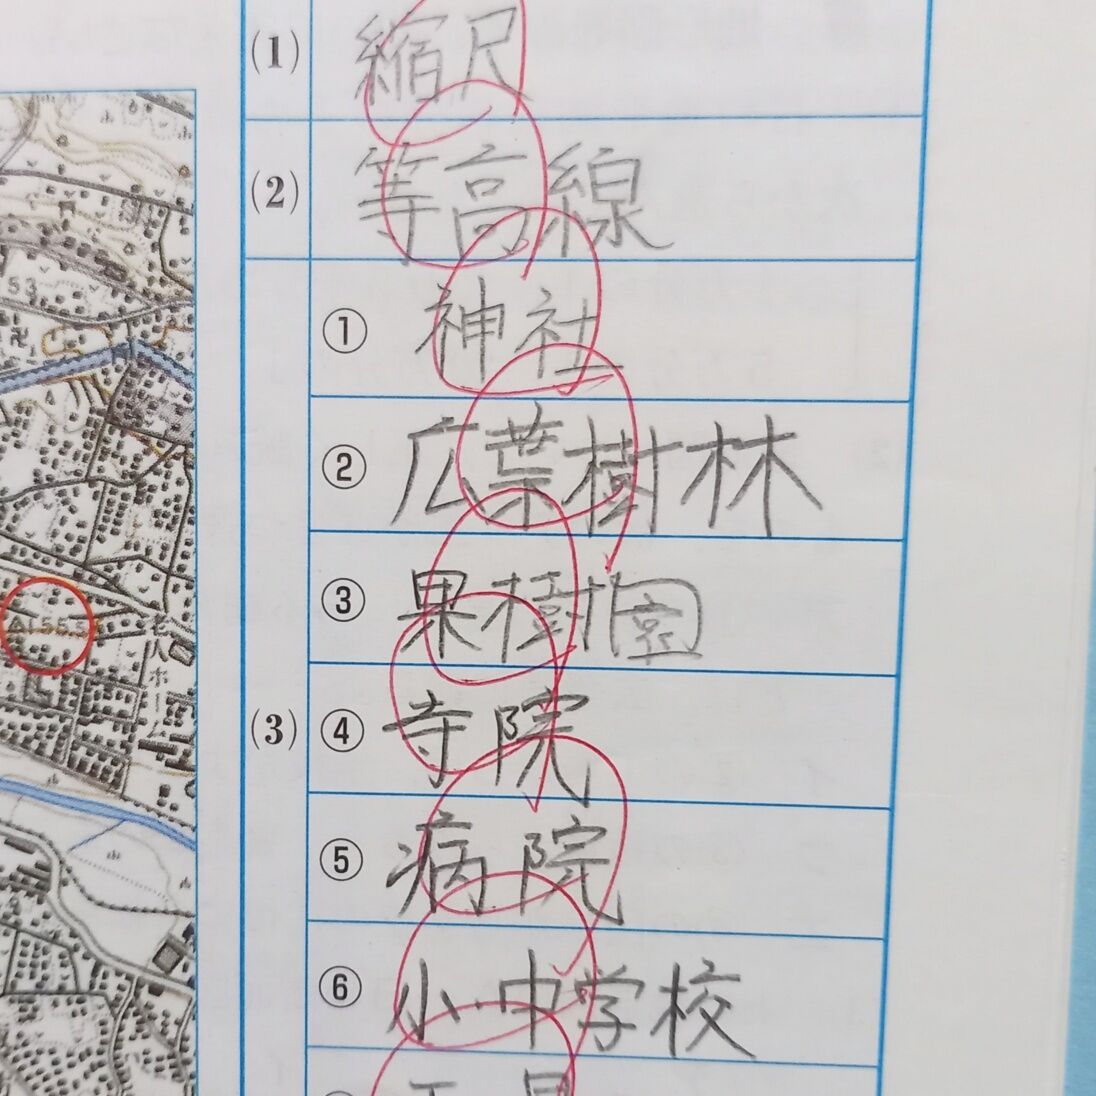 (1) 縮尺
(2) 等高線
(3)
① 神社
② 広葉樹林
③ 果樹園
④ 寺院
⑤ 病院
⑥ 小・中学校
53